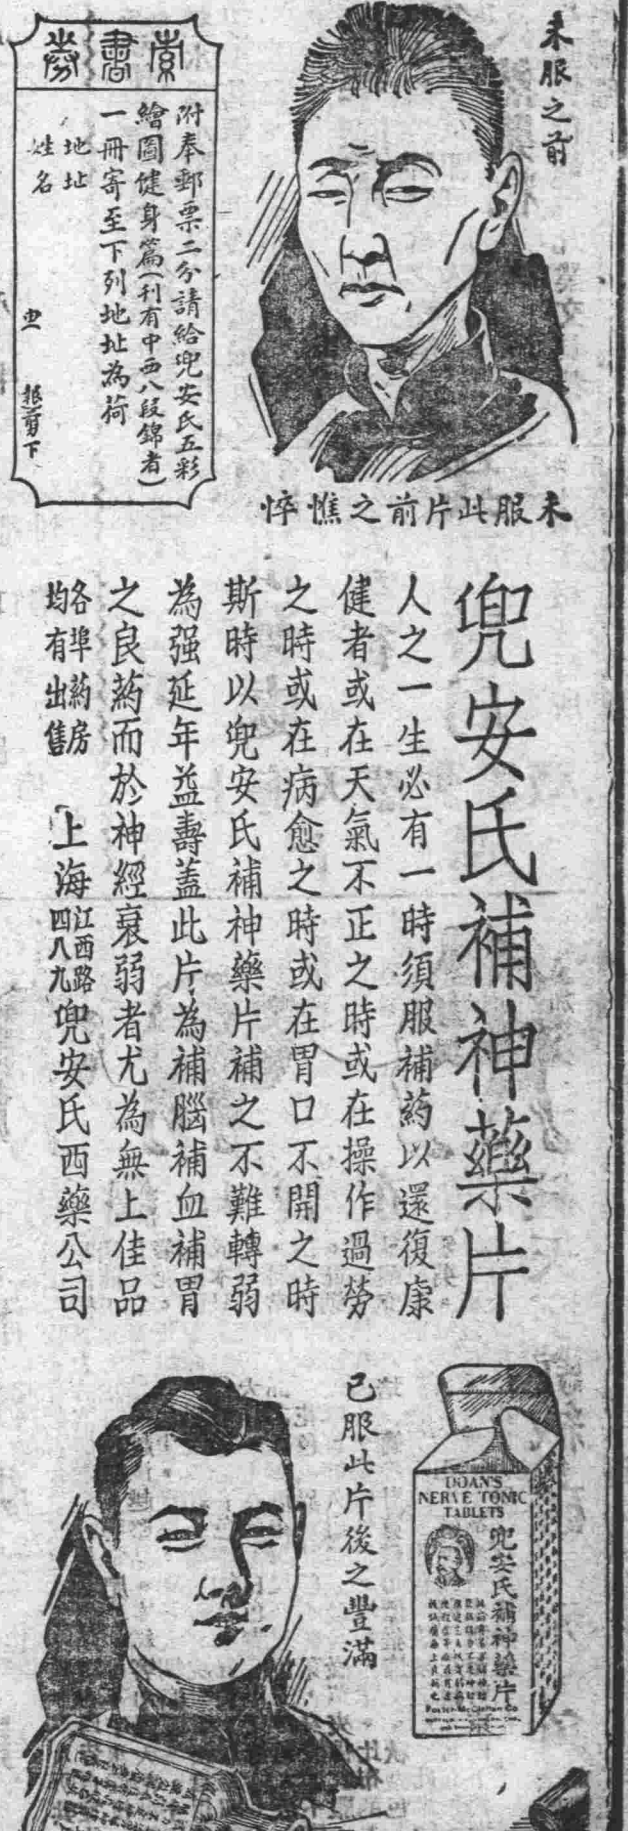 未服之前
未服此片前之憔悴
索書券
附奉郵票二分請給兜安氏五彩
繪圖健身篇(刋有中西八段錦者)
一冊寄至下列地址為荷
地址
姓名
報剪下
兜安氏補神藥片
人之一生必有一時須服補葯以還復康
健者或在天氣不正之時或在操作過勞
之時或在病愈之時或在胃口不開之時
斯時以兜安氏補神藥片補之不難轉弱
為强延年益壽蓋此片為補腦補血補胃
之良葯而於神經衰弱者尤為無上佳品
各埠葯房
均有出售
上海江西路四八九兜安氏西藥公司
已服此片後之豐滿
DOAN'S
NERVE TONIC
TABLETS
兜安氏補神藥片
Foster-McClellan Co